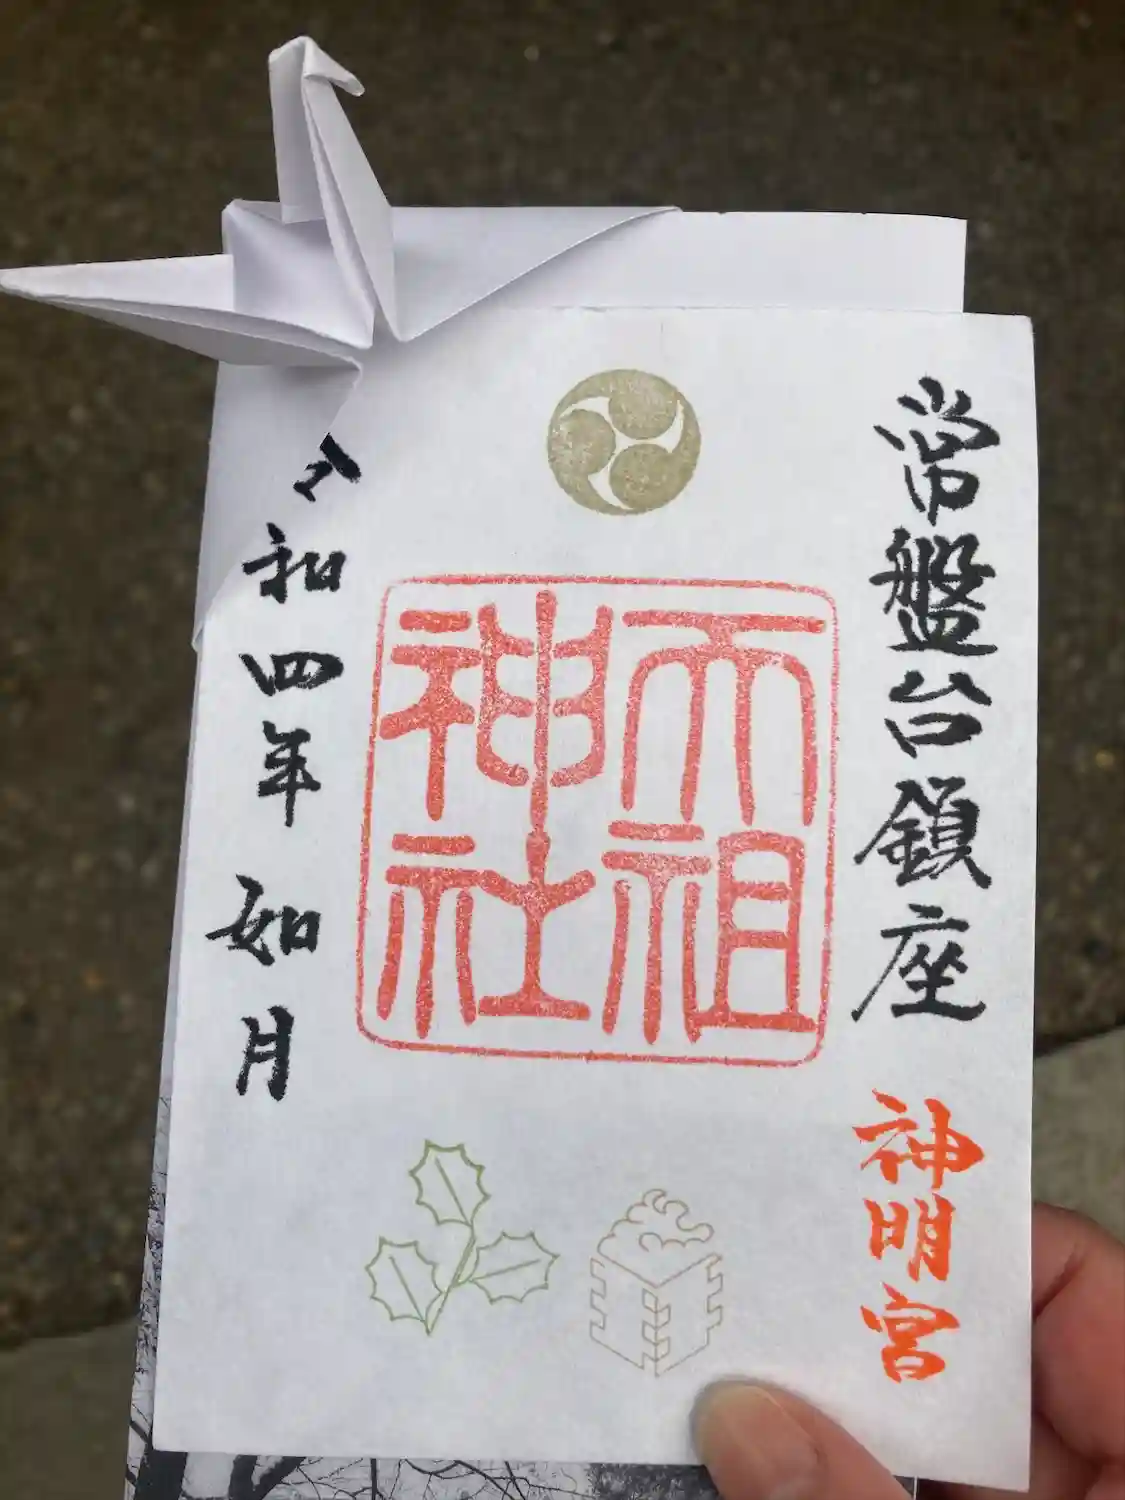 常盤台鎮座
神明宮
天祖
神社
令和四年
如月